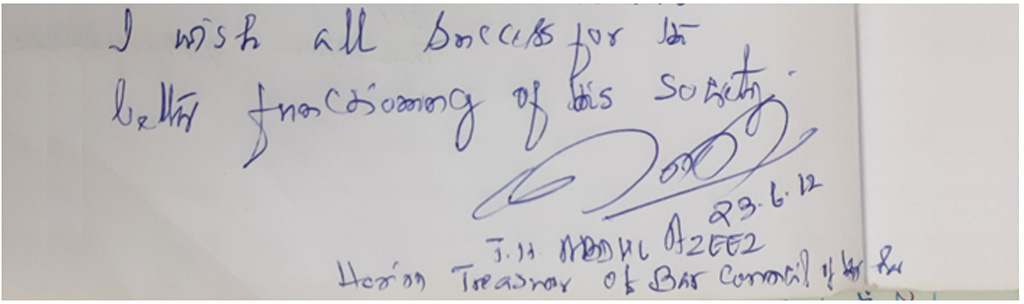 I wish all success for the
better functioning of this society.
23.6.12
ABDUL AZEEZ
Treasurer of Bar Council of